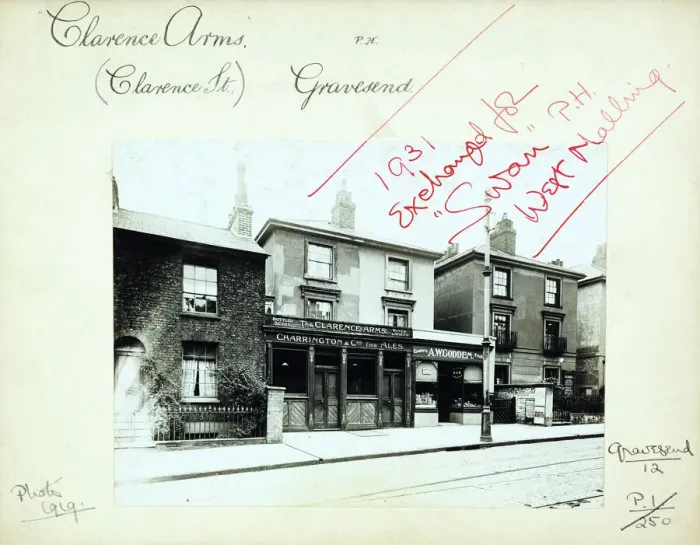 Clarence Arms. P.H.
(Clarence St.) Gravesend.
1931
Exchanged for
"Swan" P.H.
West Malling
BOTTLED BEERS THE CLARENCE ARMS. WINES
CHARRINGTON & Cos FINE ALES.
A.W. GODDEN.
Photo
1919.
Gravesend
12
P.1
250